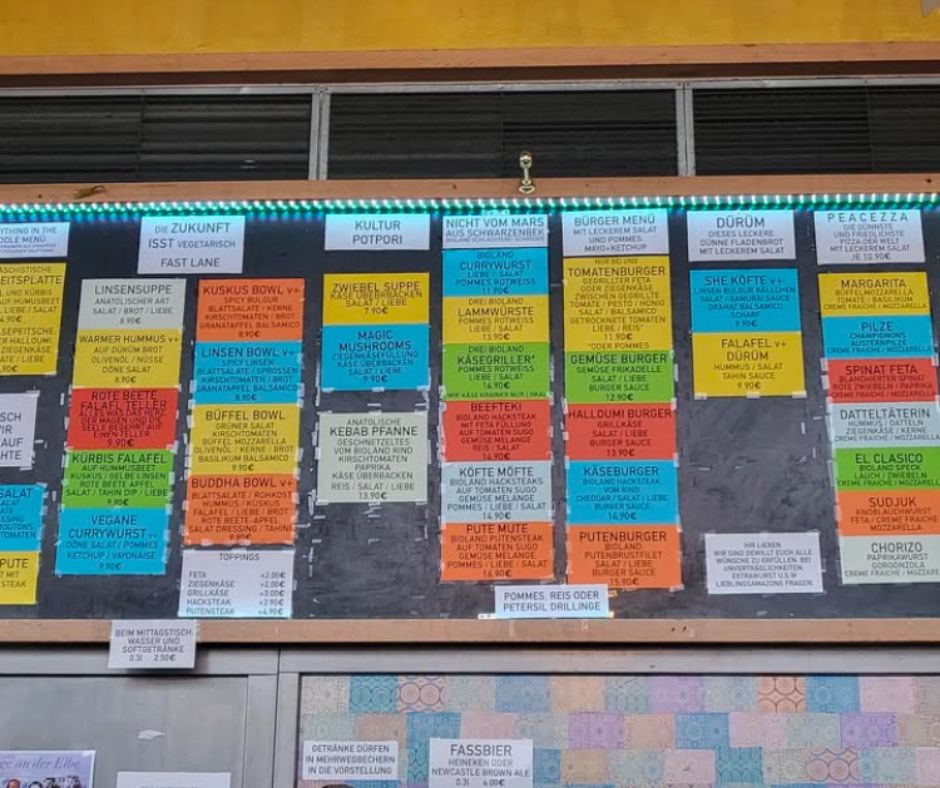 YTHING IN THE
DDLE MENÜ
EITSPLATTE
UND KÜRBIS
F HUMUSBEET
SEPEITSCHE.
ER HALLOUMI
ZIEGENKÄSE
ATE / LIEBE
SALAT
PUTE
STEAK
DIE ZUKUNFT
ISST VEGETARISCH
FAST LANE
LINSENSUPPE
ANATOLISCHER ART
SALAT / BROT / LIEBE
8.90€
WARMER HUMMUS V+
AUF DÜRÜM BROT
OLIVENÖL / NÜSSE
DÖNE SALAT
8.90€
ROTE BEETE
FALAFEL TELLER
ALLES WAS DAS HERZ,
DER MAGEN UND DIE
SEELE BEGEHRT AUF
EINEN TELLER
9.90€
KÜRBIS FALAFEL
AUF HUMMUSBEET
KUSKUS / GELBE LINSEN
ROTE BEETE APFEL
SALAT / TAHIN DIP / LIEBE
9.90€
VEGANE
CURRYWURST V+
DÖNE SALAT / POMMES
KETCHUP / VAYONAISE
9.90€
KUSKUS BOWL V+
SPICY BULGUR
BLATTSALATE / KERNE
KIRSCHTOMATEN / BROT
GRANATAPFEL BALSAMICO
8.90€
LINSEN BOWL V+
SPICY LINSEN
BLATTSALATE / SPROSSEN
KIRSCHTOMATEN / BROT
GRANATAPFEL BALSAMICO
8.90€
BÜFFEL BOWL
GRÜNER SALAT
KIRSCHTOMATEN
BÜFFEL MOZZARELLA
OLIVENÖL / KERNE / BROT
BASILIKUM BALSAMICO
9.90€
BUDDHA BOWL V+
BLATTSALATE / ROHKOST
HUMMUS / KUSKUS
FALAFEL / LIEBE / BROT
ROTE BEETE-APFEL
SALAT DRESSING / TAHIN
9.90€
TOPPINGS
FETA +2.00€
ZIEGENKÄSE +2.00€
GRILLKÄSE +3.00€
HACKSTEAK +3.90€
PUTENSTEAK +4.90€
KULTUR
POTPORI
ZWIEBEL SUPPE
KÄSE ÜBERBACKEN
SALAT / LIEBE
7.90€
MAGIC
MUSHROOMS
ZIEGENKÄSEFÜLLUNG
KÄSE ÜBERBACKEN
SALAT / LIEBE
9.90€
ANATOLISCHE
KEBAB PFANNE
GESCHNETZELTES
VOM BIOLAND RIND
KIRSCHTOMATEN
PAPRIKA
KÄSE ÜBERBACKEN
REIS / SALAT / LIEBE
13.90€
NICHT VOM MARS
AUS SCHWARZENBEK
BIOLAND SCHLACHTEREI SCHRÖDER
BIOLAND
CURRYWURST
LIEBE / SALAT
POMMES ROTWEISS
11.90€
DREI BIOLAND
LAMMWÜRSTE
POMMES ROTWEISS
LIEBE / SALAT
13.90€
DREI BIOLAND
KÄSEGRILLER*
POMMES ROTWEISS
LIEBE / SALAT
14.90€
*WIE KÄSE KRAINER NUR LOKAL
BEEFTEKI
BIOLAND HACKSTEAK
MIT FETA FÜLLUNG
AUF TOMATEN SUGO
GEMÜSE MELANGE
REIS / SALAT
14.90€
KÖFTE MÖFTE
BIOLAND HACKSTEAKS
AUF TOMATEN SUGO
GEMÜSE MELANGE
POMMES / SALAT / LIEBE
14.90€
PUTE MUTE
BIOLAND PUTENSTEAK
AUF TOMATEN SUGO
GEMÜSE MELANGE
POMMES / LIEBE / SALAT
16.90€
POMMES, REIS ODER
PETERSIL DRILLINGE
BÜRGER MENÜ
MIT LECKEREM SALAT
UND POMMES
MAYO+KETCHUP
NUR BEI UNS
TOMATENBURGER
GEGRILLTER FETA
ODER ZIEGENKÄSE
ZWISCHEN GEGRILLTE
TOMATE / PESTO / HONIG
SALAT / BALSAMICO
GETROCKNETE TOMATEN
LIEBE / REIS*
11.90€
*ODER POMMES
GEMÜSE BURGER
GEMÜSE FRIKADELLE
SALAT / LIEBE
BURGER SAUCE
12.90€
HALLOUMI BURGER
GRILLKÄSE
SALAT / LIEBE
BURGER SAUCE
13.90€
KÄSEBURGER
BIOLAND HACKSTEAK
VOM RIND
CHEDDAR / SALAT / LIEBE
BURGER SAUCE
14.90€
PUTENBURGER
BIOLAND
PUTENBRUSTFILET
SALAT / LIEBE
BURGER SAUCE
15.90€
DÜRÜM
DIESES LECKERE
DÜNNE FLADENBROT
MIT LECKEREM SALAT
SHE KÖFTE V+
LINSEN BULGUR BÄLLCHEN
SALAT / SAMURAI SAUCE
GRANAT BALSAMICO
SCHARF
9.90€
FALAFEL V+
DÜRÜM
HUMMUS / SALAT
TAHIN SAUCE
9.90€
IHR LIEBEN
WIR SIND GEWILLT EUCH ALLE
WÜNSCHE ZU ERFÜLLEN. BEI
UNVERTRÄGLICHKEITEN,
EXTRAWURST U.S.W
LIEBLINGSAMAZONE FRAGEN
PEACEZZA
DIE DÜNNSTE
UND FRIEDLICHSTE
PIZZA DER WELT
MIT LECKEREM SALAT
JE 10.90€
MARGARITA
BÜFFELMOZZARELLA
TOMATE / BASILIKUM
CREME FRAICHE / MOZZARELLA
PILZE
CHAMPIGNONS
AUSTERNPILZE
CREME FRAICHE / MOZZARELLA
SPINAT FETA
BLANCHIERTER SPINAT
ROTE ZWIEBELN / PAPRIKA
CREME FRAICHE / MOZZARELLA
DATTELTÄTERIN
HUMMUS / DATTELN
ZIEGENKÄSE / KERNE
CREME FRAICHE / MOZZARELLA
EL CLASICO
BIOLAND SPECK
LAUCH / ZWIEBELN
CREME FRAICHE / MOZZARELLA
SUDJUK
KNOBLAUCHWURST
FETA / CREME FRAICHE
MOZZARELLA
CHORIZO
PAPRIKAWURST
GORGONZOLA
CREME FRAICHE / MOZZARELLA
BEIM MITTAGSTISCH
WASSER UND
SOFTGETRÄNKE
0.3l 2.50€
GETRÄNKE DÜRFEN
IN MEHRWEGBECHERN
IN DIE VORSTELLUNG
FASSBIER
HEINEKEN ODER
NEWCASTLE BROWN ALE
0.3l 4.00€
ge an der Elbe